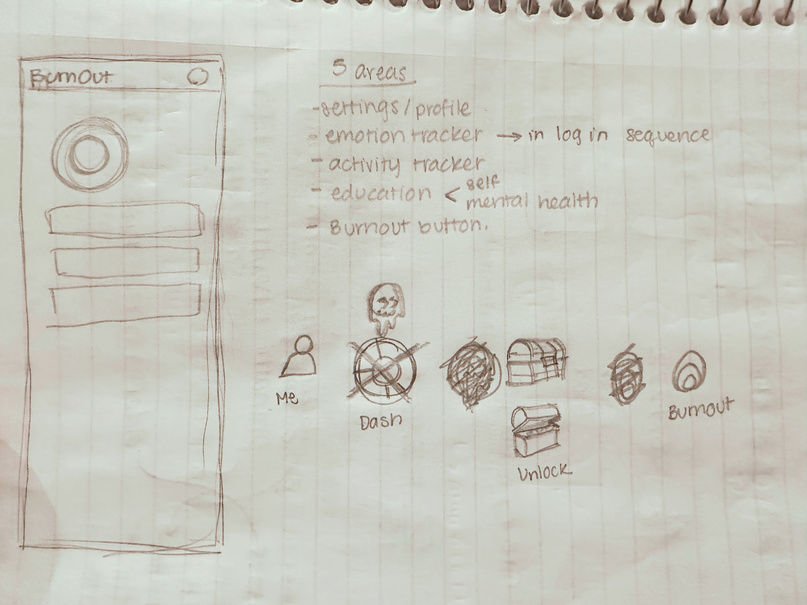 BurnOut
5 areas
- settings/profile
- emotion tracker → in log in sequence
- activity tracker
- education < self
mental health
- Burnout button.
Me
Dash
Unlock
Burnout